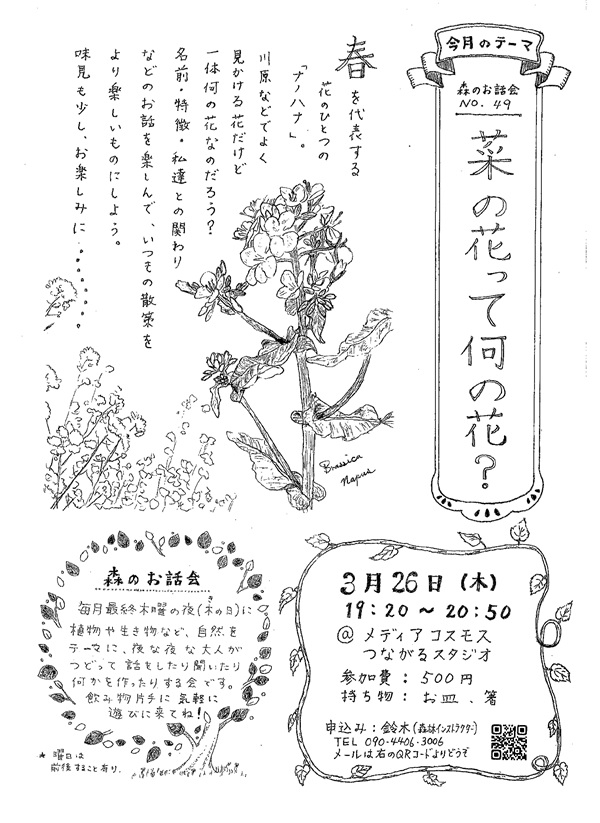 今月のテーマ
森のお話会
NO. 49
菜の花って何の花?
春を代表する
花のひとつの
「ナノハナ」。
川原などでよく
見かける花だけど
一体何の花なのだろう?
名前・特徴・私達との関わり
などのお話を楽しんで、いつもの散策を
より楽しいものにしよう。
味見も少し、お楽しみに………
Brassica
Napus
森のお話会
毎月最終木曜の夜(木の日)に
植物や生き物など、自然を
テーマに、夜な夜な大人が
つどって話をしたり聞いたり
何かを作ったりする会です。
飲み物片手に気軽に
遊びに来てね!
* 曜日は
前後することあり.
3月26日(木)
19:20〜20:50
@メディアコスモス
つながるスタジオ
参加費:500円
持ち物:お皿、箸
申込み:鈴木(森林インストラクター)
TEL 090-4406-3006
メールは右のQRコードよりどうぞ